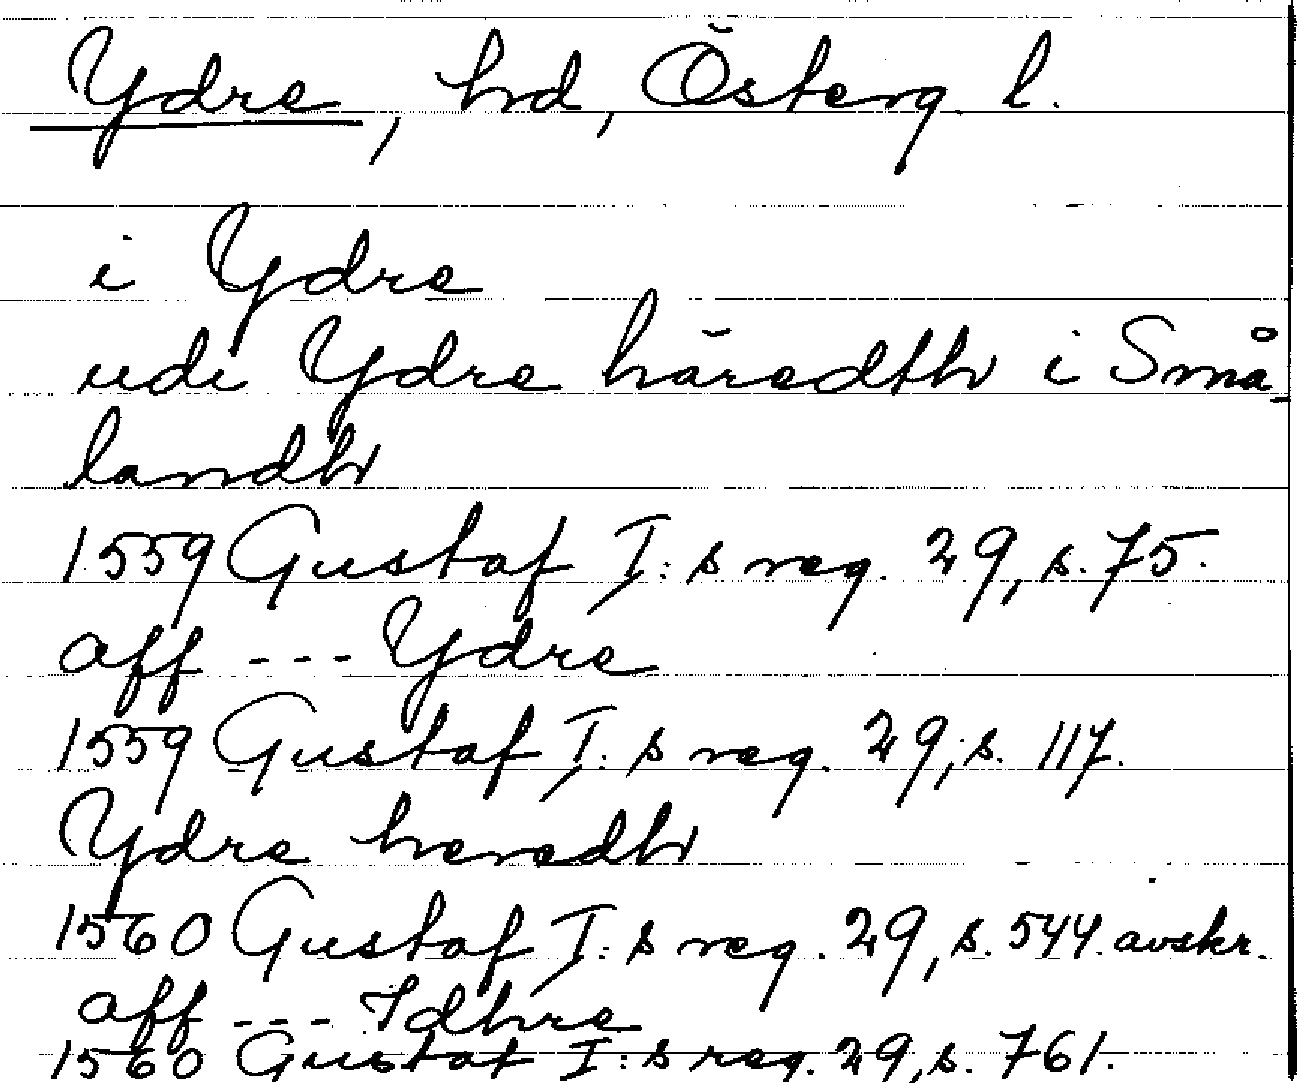 Ydre, hrd, Österg. l.
i Ydre
udi Ydre häredth i Små-
landh
1559 Gustaf I:s reg. 29, s. 75.
aff --- Ydre
1559 Gustaf I:s reg. 29, s. 117.
Ydre heredh
1560 Gustaf I:s reg. 29, s. 544. avskr.
aff --- Idhre
1560 Gustaf I:s reg. 29, s. 761.